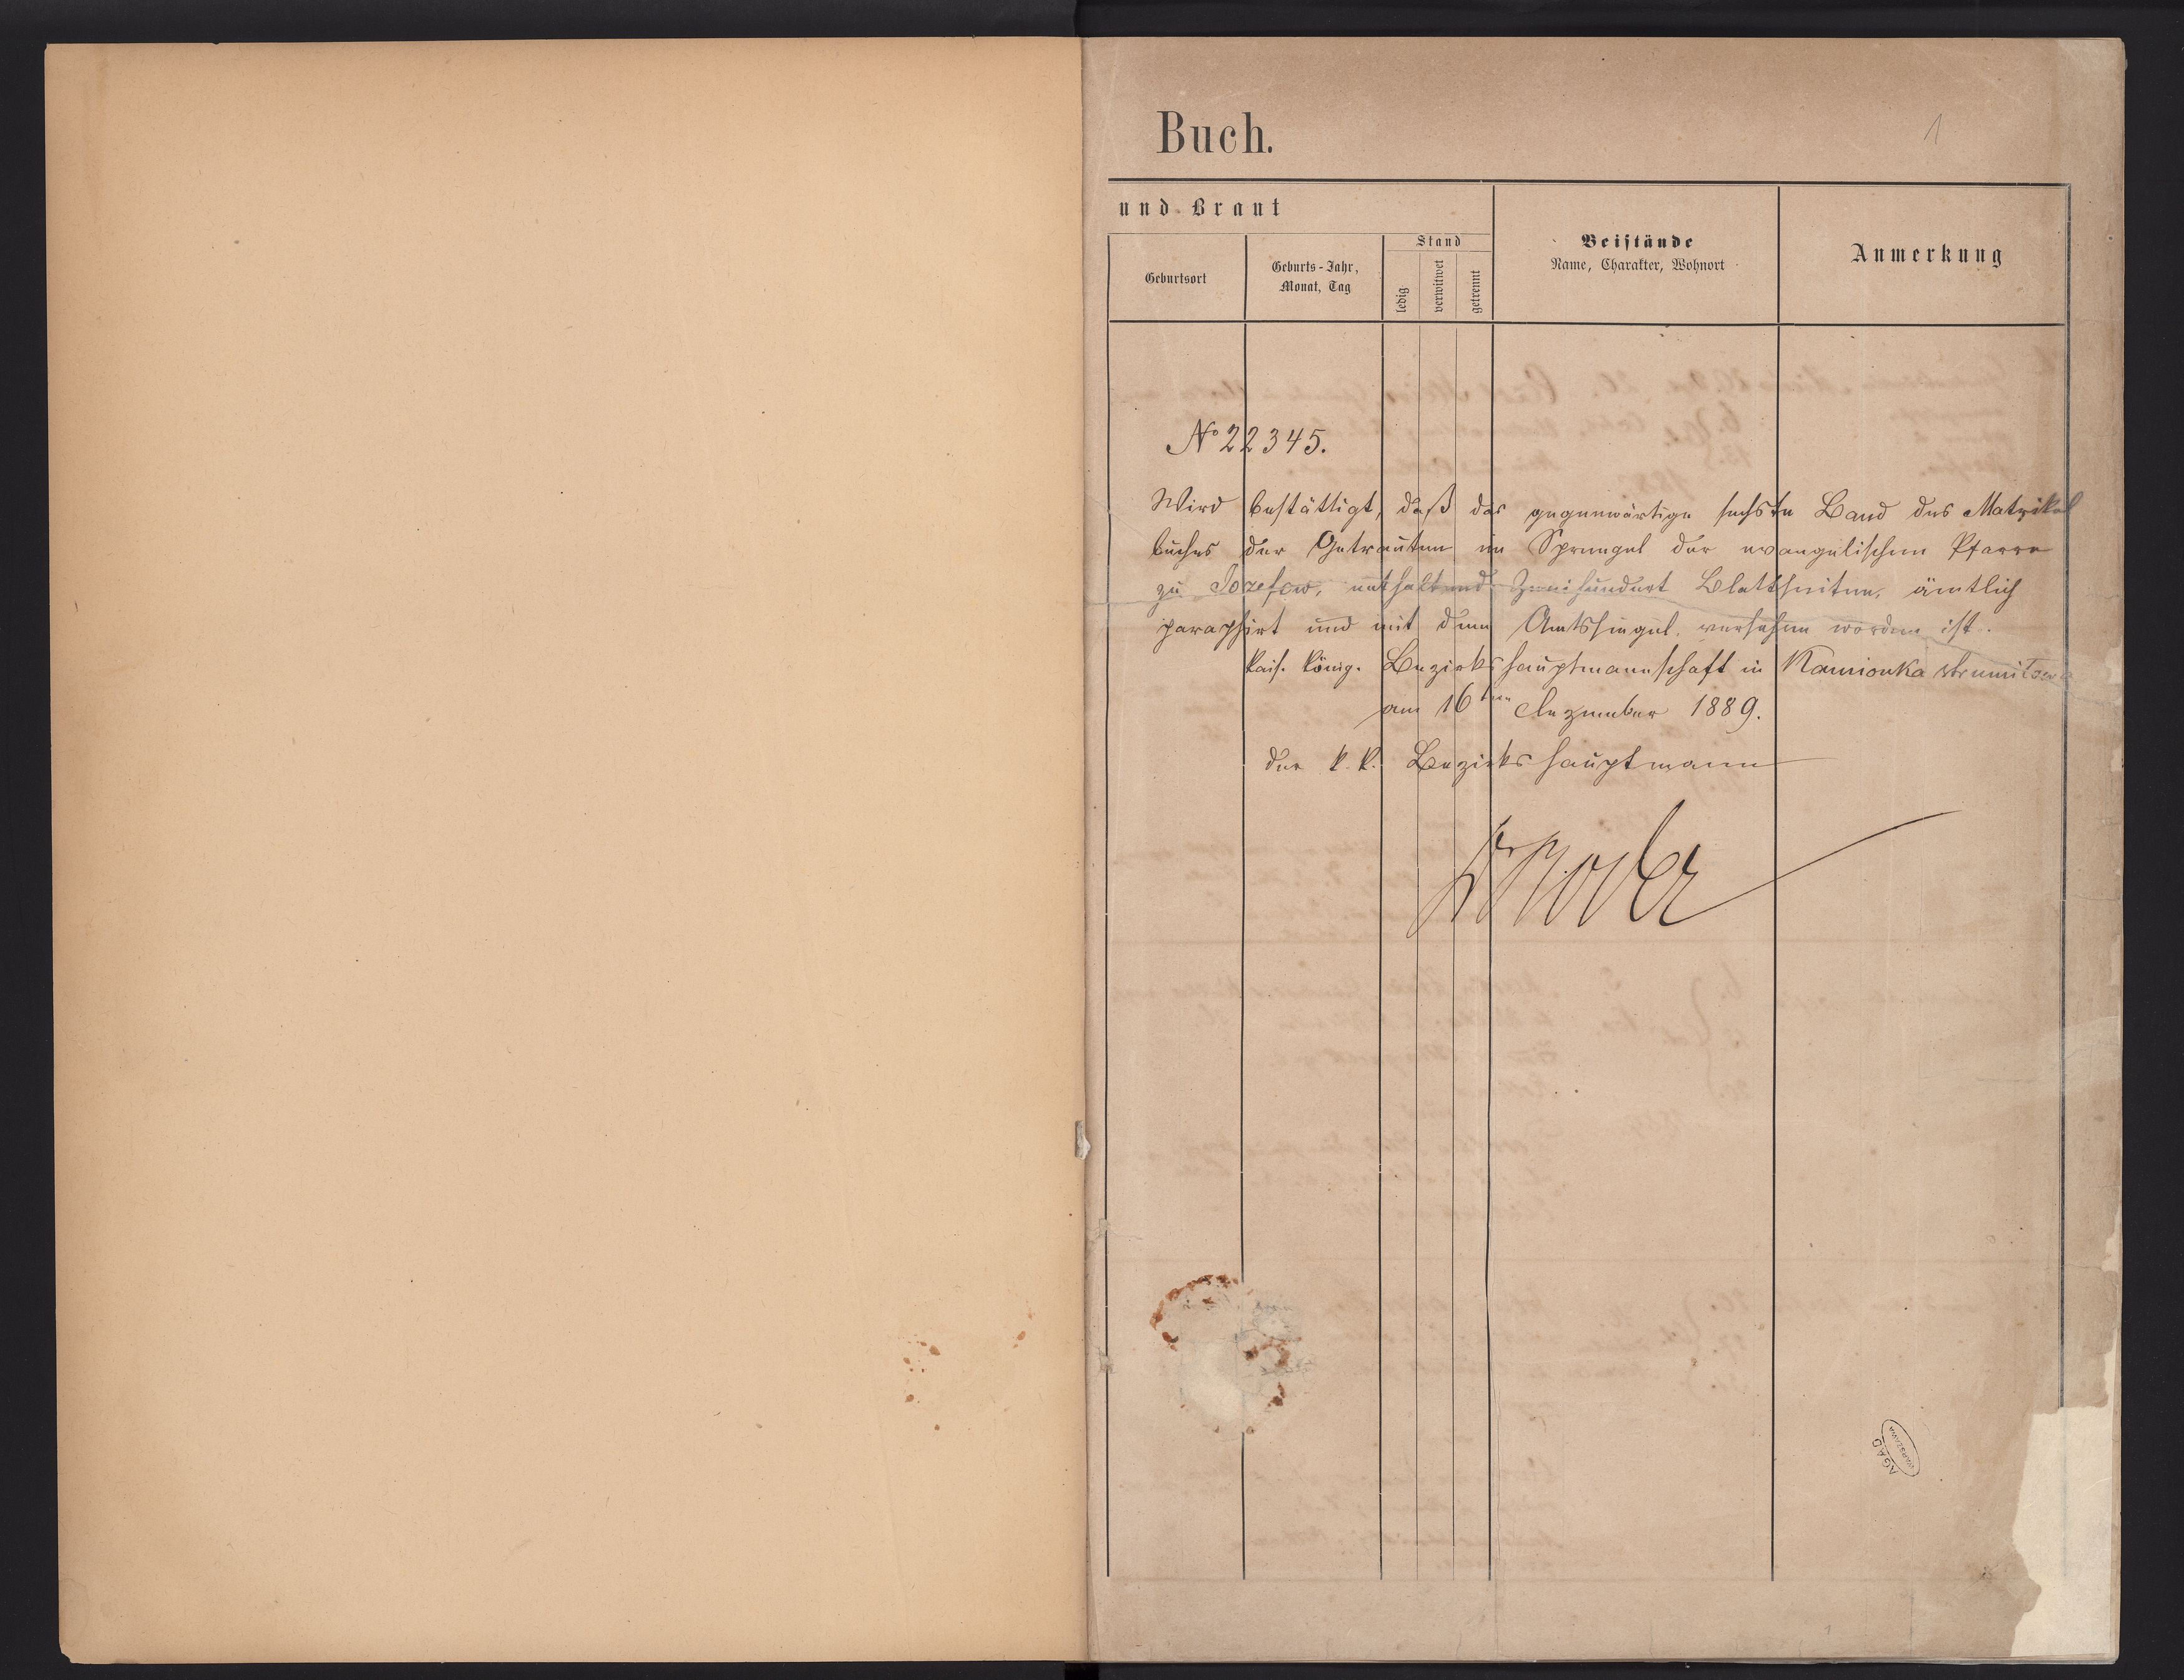 Buch.
1
und Braut
Geburtsort
Geburts-Jahr,
Monat, Tag
Stand
ledig
verwitwet
getrennt
Beistände
Name, Charakter, Wohnort
Anmerkung
No 22345.
Wird bestättigt, daß das gegenwärtige sechste Band des Matrikel
buches der Getrauten im Sprengel der evangelischen Pfarre
zu Josefow, enthaltend Zweihundert Blattseiten, ämtlich
paraphirt und mit dem Amtssiegel versehen worden ist.
Kais. König. Bezirkshauptmannschaft in Kamionka strumilowa
am 16ten Dezember 1889.
der k. k. Bezirkshauptmann
AGAD
WARSZAWA